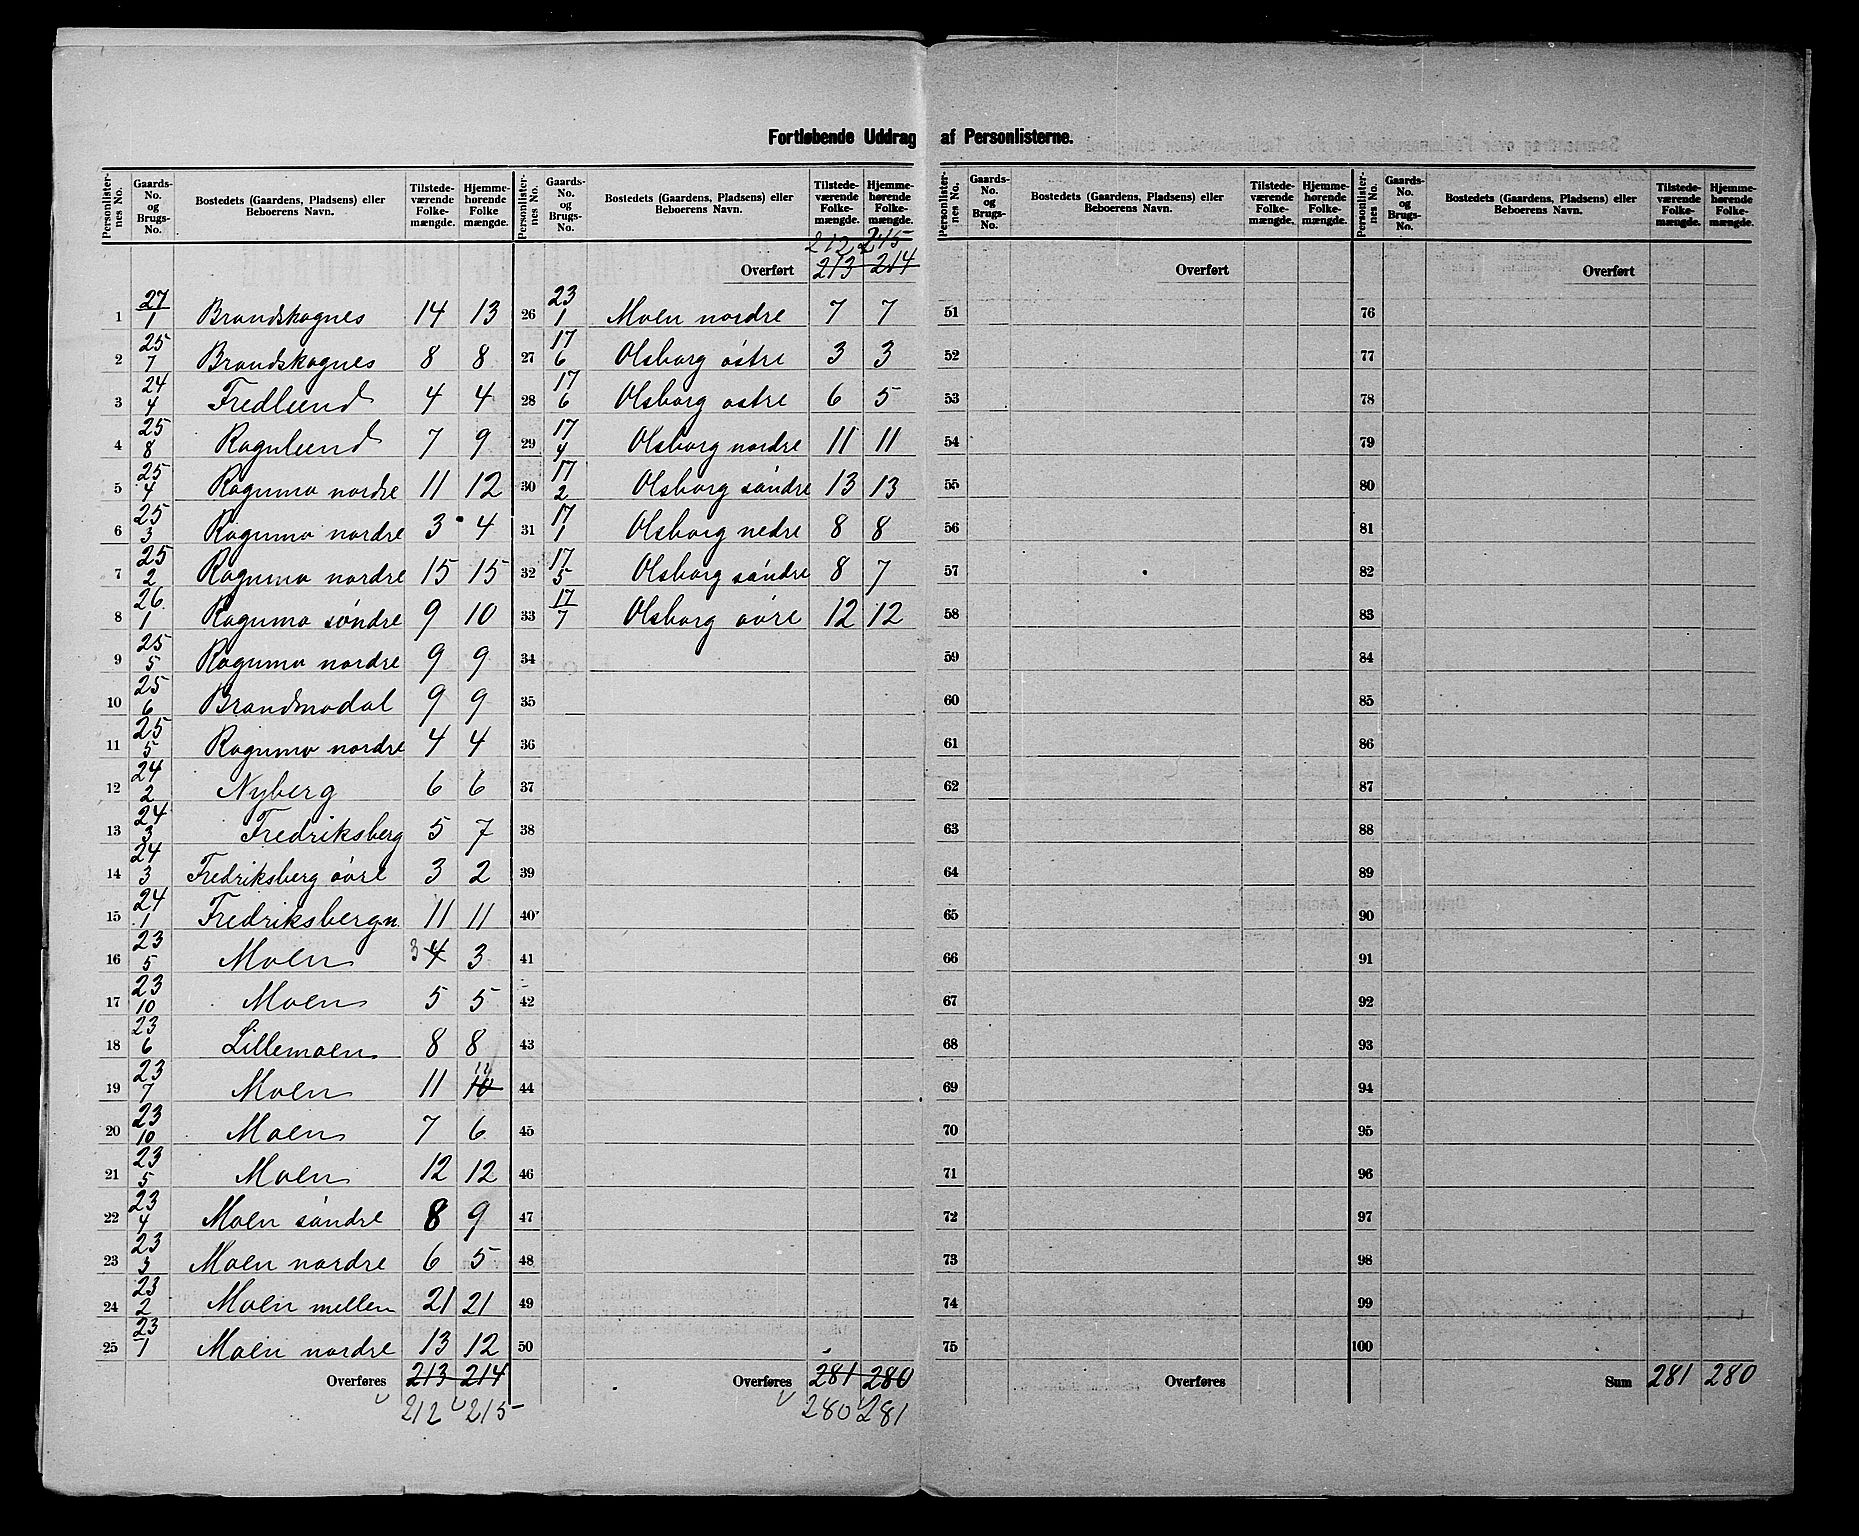 Fortløbende Uddrag af Personlisterne.
Personlisternes No. Gaards-No. og Brugs-No. Bostedets (Gaardens, Pladsens) eller Beboerens Navn. Tilstedeværende Folkemængde. Hjemmehørende Folkemængde.
1 27/1 Brandskognes 14 13
2 25/7 Brandskognes 8 8
3 24/4 Fredlund 4 4
4 25/8 Rognlund 7 9
5 25/4 Rognmo nordre 11 12
6 25/3 Rognmo nordre 3 4
7 25/2 Rognmo nordre 15 15
8 26/1 Rognmo søndre 9 10
9 25/5 Rognmo nordre 9 9
10 25/6 Brandmodal 9 9
11 25/5 Rognmo nordre 4 4
12 24/2 Nyberg 6 6
13 24/3 Fredriksberg 5 7
14 24/3 Fredriksberg övre 3 2
15 24/1 Fredriksberg n. 11 11
16 23/5 Moen 3 4 3
17 23/10 Moen 5 5
18 23/6 Lillemoen 8 8
19 23/7 Moen 11 10 11
20 23/10 Moen 7 6
21 23/5 Moen 12 12
22 23/4 Moen söndre 8 9
23 23/3 Moen nordre 6 5
24 23/2 Moen mellem 21 21
25 23/1 Moen nordre 13 12
Overføres 213 214
212 215
Personlisternes No. Gaards-No. og Brugs-No. Bostedets (Gaardens, Pladsens) eller Beboerens Navn. Tilstedeværende Folkemængde. Hjemmehørende Folkemængde.
212 215
Overført 213 214
26 23/1 Moen nordre 7 7
27 17/6 Olsborg östre 3 3
28 17/6 Olsborg östre 6 5
29 17/4 Olsborg nordre 11 11
30 17/2 Olsborg söndre 13 13
31 17/1 Olsborg nedre 8 8
32 17/5 Olsborg söndre 8 7
33 17/7 Olsborg övre 12 12
34
35
36
37
38
39
40
41
42
43
44
45
46
47
48
49
50
Overføres 281 280
280 281
Personlisternes No. Gaards-No. og Brugs-No. Bostedets (Gaardens, Pladsens) eller Beboerens Navn. Tilstedeværende Folkemængde. Hjemmehørende Folkemængde.
Overført
51
52
53
54
55
56
57
58
59
60
61
62
63
64
65
66
67
68
69
70
71
72
73
74
75
Overføres
Personlisternes No. Gaards-No. og Brugs-No. Bostedets (Gaardens, Pladsens) eller Beboerens Navn. Tilstedeværende Folkemængde. Hjemmehørende Folkemængde.
Overført
76
77
78
79
80
81
82
83
84
85
86
87
88
89
90
91
92
93
94
95
96
97
98
99
100
Sum 281 280